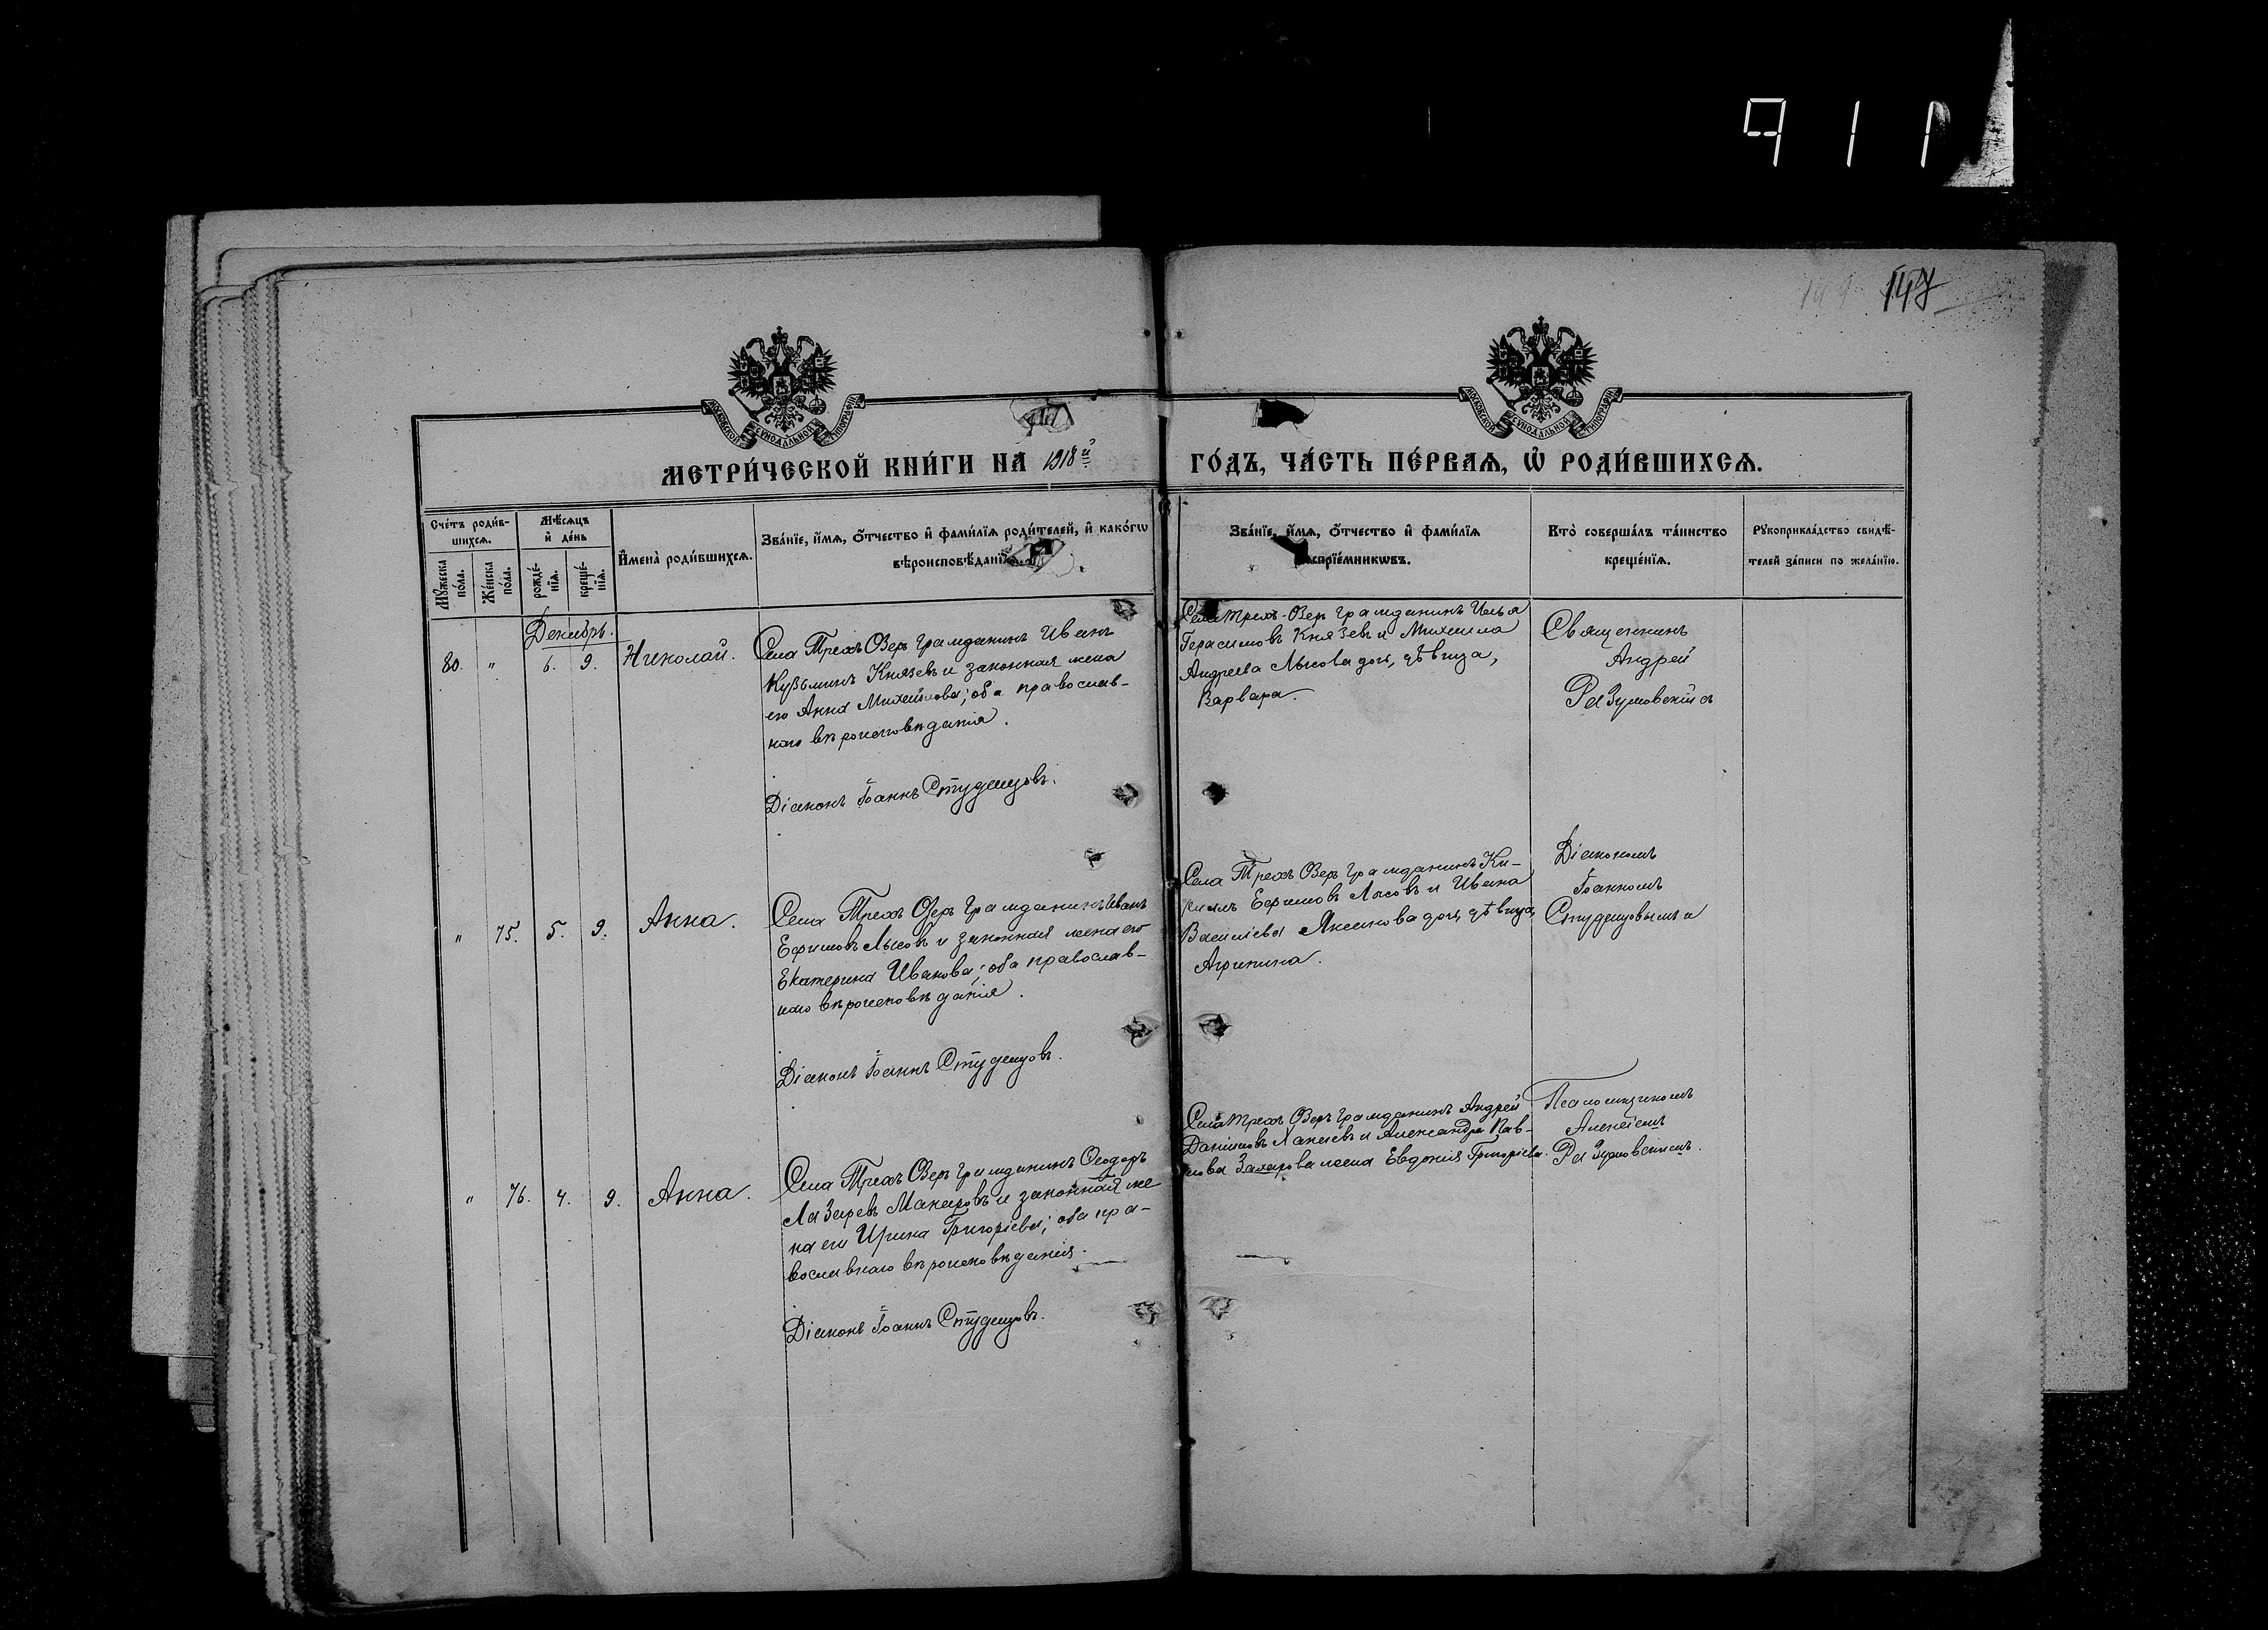 911
147
МОСКОВСКОЙ СѴНОДАЛЬНОЙ ТИПОГРАФІИ
МОСКОВСКОЙ СѴНОДАЛЬНОЙ ТИПОГРАФІИ
МЕТРИ́ЧЕСКОЙ КНИ́ГИ НА 1918й ГО́ДЪ, ЧА́СТЬ ПЕ́РВАѦ, Ѿ РОДИ́ВШИХСѦ.
Сче́тъ роди́в-
шихсѧ.
Мꙋ́жеска по́ла.
Же́нска по́ла.
Мѣ́сѧцъ
и҆ де́нь
рожде́-нїѧ.
креще́-нїѧ.
И҆мена̀ роди́вшихсѧ.
Зва́нїе, и҆́мѧ, ѻ҆́тчество и҆ фами́лїѧ роди́телей, и҆ како́гѡ
вѣроисповѣ́данїѧ
Зва́нїе, и҆́мѧ, ѻ҆́тчество и҆ фами́лїѧ
воспрїе́мникѡвъ.
Кто̀ соверша́лъ та́инство
креще́нїѧ.
Рꙋкоприкла́дство свидѣ́-
телей за́писи по жела́нїю.
Декабрь.
80. " 6. 9. Николай.
Села Трехъ Озеръ гражданинъ Иванъ
Кузьминъ Князевъ и законная жена
его Анна Михайлова; оба православ-
наго вѣроисповѣданія.
Діаконъ Іоаннъ Студенцовъ.
Села Трехъ-Озеръ гражданинъ Илья
Герасимовъ Князевъ и Михаила
Андреева Лысова дочь, дѣвица,
Варвара.
Священникъ
Андрей
Разумовскій
" 75. 5. 9. Анна.
Села Трехъ Озеръ гражданинъ Иванъ
Ефимовъ Лысовъ и законная жена его
Екатерина Иванова; оба православ-
наго вѣроисповѣданія.
Діаконъ Іоаннъ Студенцовъ.
Села Трехъ Озеръ гражданинъ Ки-
риллъ Ефимовъ Лысовъ и Ивана
Васильева дочь, дѣвица,
Агрипина.
Діакономъ
Іоанномъ
Студенцовымъ
" 76. 4. 9. Анна.
Села Трехъ Озеръ гражданинъ Ѳеодоръ
Лазаревъ Макаровъ и законная же
на его Ирина Григоріева; оба пра-
вославнаго вѣроисповѣданія.
Діаконъ Іоаннъ Студенцовъ.
Села Трехъ Озеръ гражданинъ Андрей
Даниловъ и Александра Пав-
лова Захарова жена Евдокія Григоріева.
Псаломщикомъ
Алексѣемъ
Разумовскимъ.